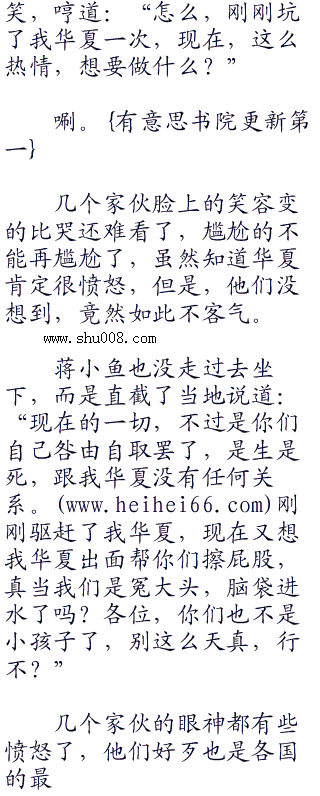 笑，哼道：“怎么，刚刚坑
了我华夏一次，现在，这么
热情，想要做什么？”
唰。{有意思书院更新第
一}
几个家伙脸上的笑容变
的比哭还难看了，尴尬的不
能再尴尬了，虽然知道华夏
肯定很愤怒，但是，他们没
想到，竟然如此不客气。
www.shu008.com
蒋小鱼也没走过去坐
下，而是直截了当地说道：
“现在的一切，不过是你们
自己咎由自取罢了，是生是
死，跟我华夏没有任何关
系。(www.heihei66.com)刚
刚驱赶了我华夏，现在又想
我华夏出面帮你们擦屁股，
真当我们是冤大头，脑袋进
水了吗？各位，你们也不是
小孩子了，别这么天真，行
不？”
几个家伙的眼神都有些
愤怒了，他们好歹也是各国
的最